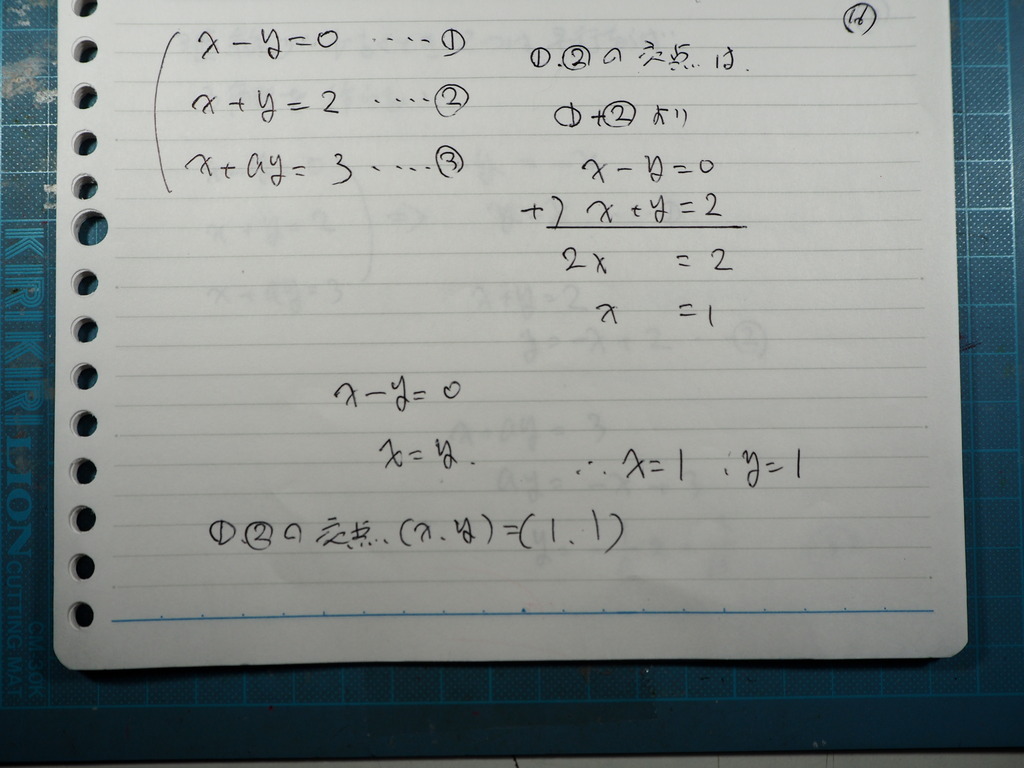 ⑯
x - y = 0 ····· ①
x + y = 2 ····· ②
x + ay = 3 ····· ③
①.②の交点は.
①+②より
x - y = 0
+) x + y = 2
2x = 2
x = 1
x - y = 0
x = y.
∴ x = 1 : y = 1
①.②の交点.(x.y)=(1.1)
KIRIKIRI LION CUTTING MAT